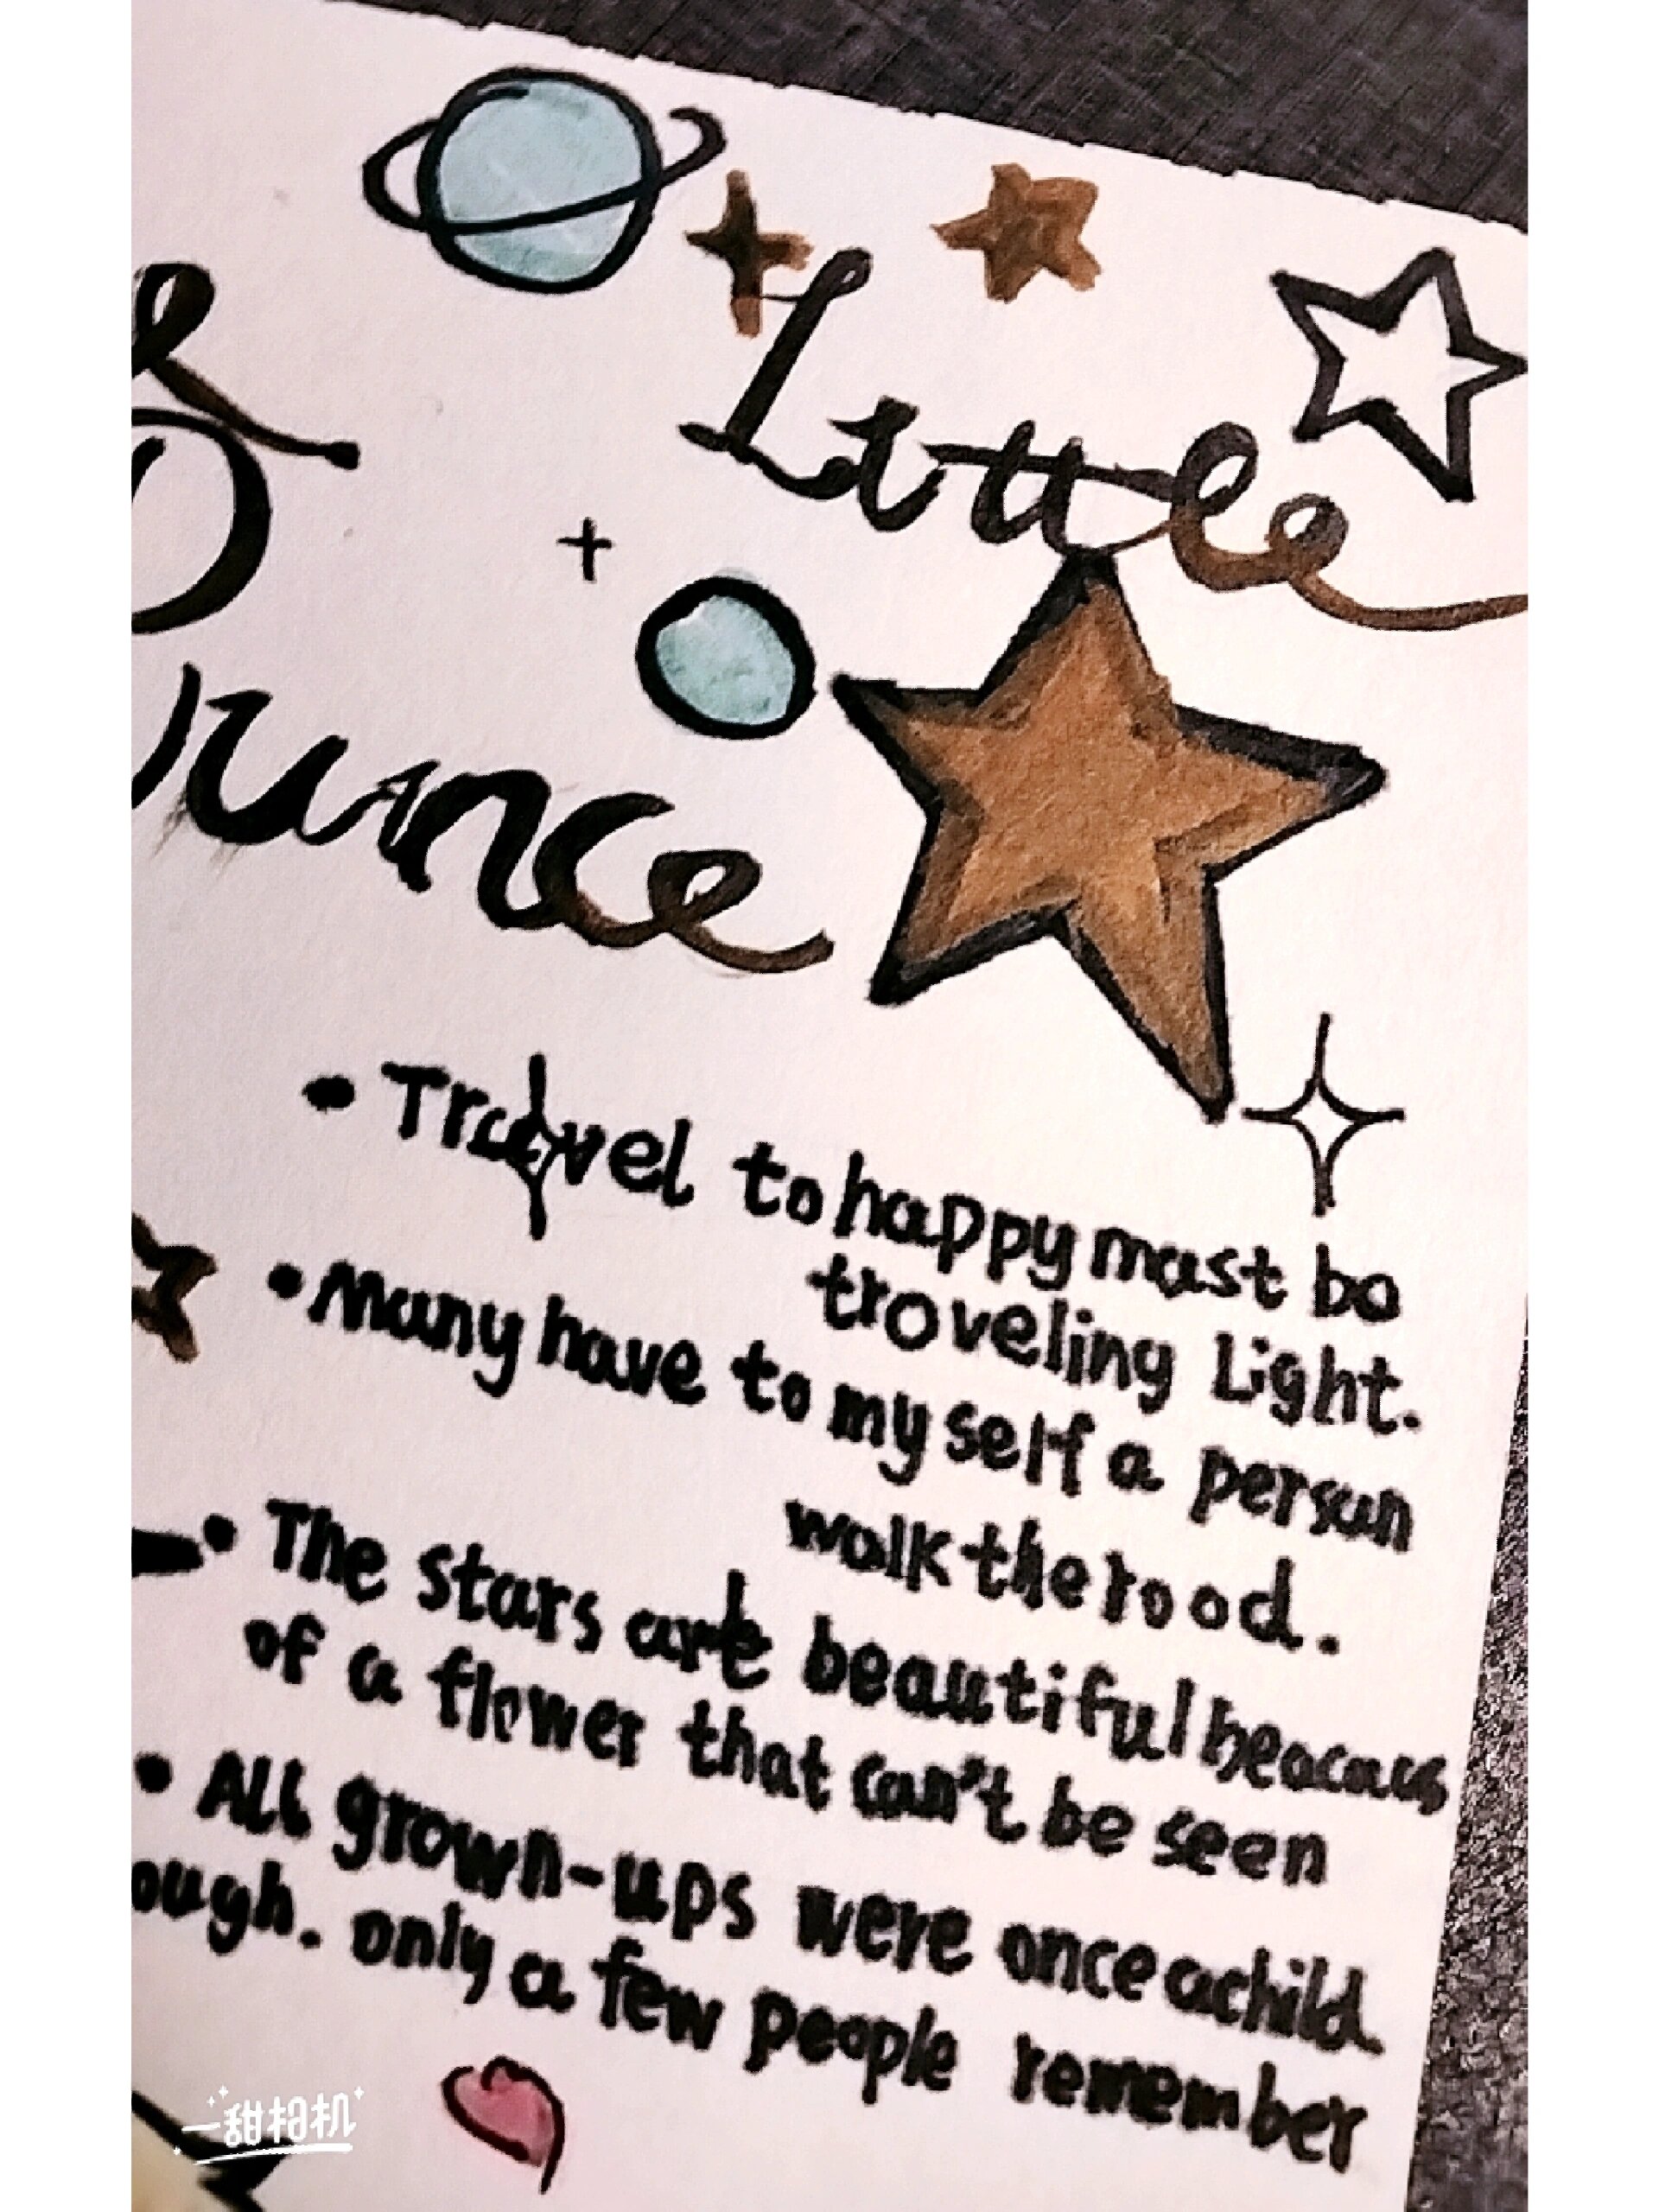 Little
Prince
• Travel to happy mast bo
troveling Light.
• Many have to my self a persun
wolk the rood.
• The stars are beautiful
of a flower that can't be seen
• All grown-ups were once a child
ough. only a few people remember
一甜相机